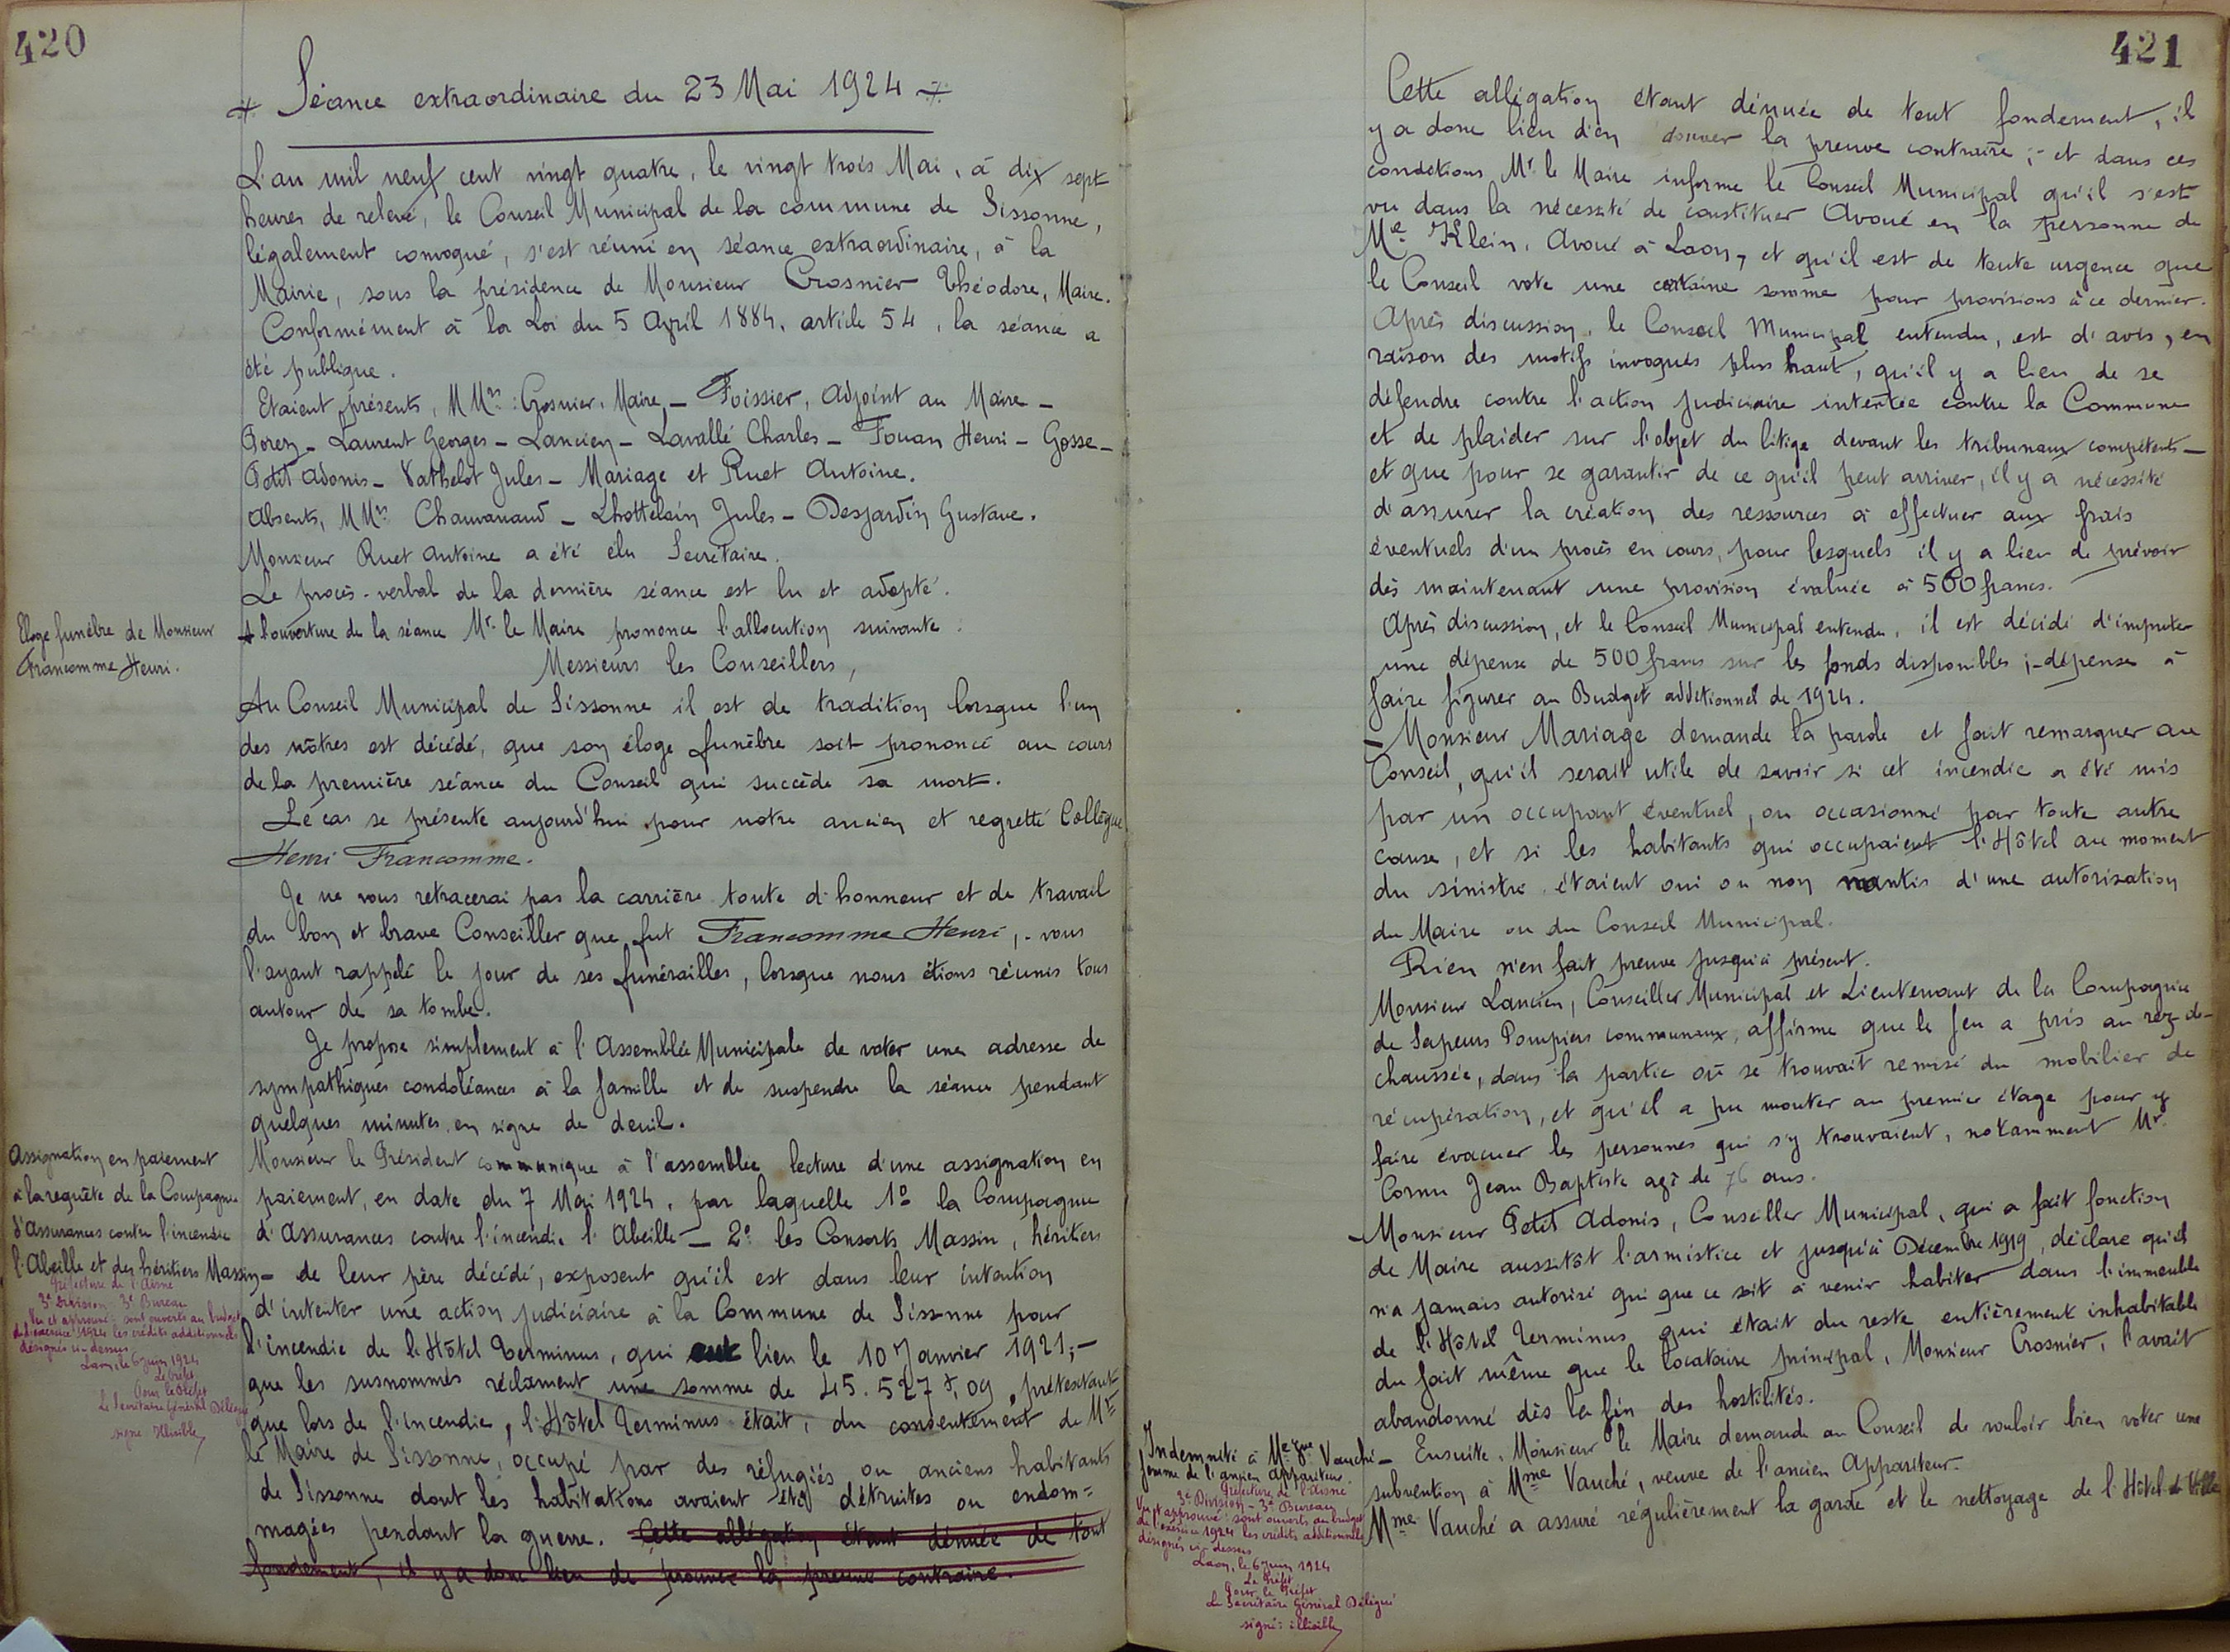 420
Séance extraordinaire du 23 Mai 1924
L'an mil neuf cent vingt quatre, le vingt trois Mai, à dix sept
heures de relevé, le Conseil Municipal de la commune de Sissonne,
légalement convoqué, s'est réuni en séance extraordinaire, à la
Mairie, sous la présidence de Monsieur Crosnier Théodore, Maire.
Conformément à la Loi du 5 Avril 1884, article 54, la séance a
été publique.
Etaient présents, MMrs : Crosnier, Maire, — Foissier, Adjoint au Maire —
Porez — Laurent Georges — Lancien — Lavallé Charles — Fouan Henri — Gosse —
Petit Adonis — Vathelot Jules — Mariage et Ruet Antoine.
Absents, MMrs Chauvanaud — Lhottelain Jules — Desjardin Gustave.
Monsieur Ruet Antoine a été élu Secrétaire.
Le procès-verbal de la dernière séance est lu et adopté.
Eloge funèbre de Monsieur
Francomme Henri.
A l'ouverture de la séance Mr. le Maire prononce l'allocution suivante :
Messieurs les Conseillers,
Au Conseil Municipal de Sissonne il est de tradition lorsque l'un
des nôtres est décédé, que son éloge funèbre soit prononcé au cours
de la première séance du Conseil qui succède sa mort.
Le cas se présente aujourd'hui pour notre ancien et regretté Collègue
Henri Francomme.
Je ne vous retracerai pas la carrière toute d'honneur et de travail
du bon et brave Conseiller que fut Francomme Henri, - vous
l'ayant rappelé le jour de ses funérailles, lorsque nous étions réunis tous
autour de sa tombe.
Je propose simplement à l'Assemblée Municipale de voter une adresse de
sympathiques condoléances à la famille et de suspendre la séance pendant
quelques minutes en signe de deuil.
Assignation en paiement
à la requête de la Compagnie
d'Assurances contre l'incendie
l'Abeille et des héritiers Massin —
Préfecture de l'Aisne
3e Division - 3e Bureau
Vu et approuvé : sont ouverts au budget
de l'exercice 1924 les crédits additionnels
désignés ci-dessus
Laon, le 6 juin 1924
Le Préfet
Pour le Préfet
Le Secrétaire Général Délégué
signé : Illisible
Monsieur le Président communique à l'assemblée lecture d'une assignation en
paiement, en date du 7 Mai 1924, par laquelle 1º la Compagnie
d'Assurances contre l'incendie l'Abeille — 2º les Consorts Massin, héritiers
de leur père décédé, exposent qu'il est dans leur intention
d'intenter une action judiciaire à la Commune de Sissonne pour
l'incendie de l'Hôtel Terminus, qui eut lieu le 10 Janvier 1921; —
que les susnommés réclament une somme de 45.527 f,09, prétextant
que lors de l'incendie, l'Hôtel Terminus était, du consentement de Mr
le Maire de Sissonne, occupé par des réfugiés ou anciens habitants
de Sissonne dont les habitations avaient été détruites ou endom=
magées pendant la guerre. Cette allégation étant dénuée de tout
fondement, il y a donc lieu de prouver la preuve contraire.
421
Cette allégation étant dénuée de tout fondement, il
y a donc lieu d'en donner la preuve contraire ; - et dans ces
conditions Mr. le Maire informe le Conseil Municipal qu'il s'est
vu dans la nécessité de constituer Avoué en la personne de
Me Klein, Avoué à Laon, et qu'il est de toute urgence que
le Conseil vote une certaine somme pour provisions à ce dernier.
Après discussion, le Conseil Municipal entendu, est d'avis, en
raison des motifs invoqués plus haut, qu'il y a lieu de se
défendre contre l'action judiciaire intentée contre la Commune
et de plaider sur l'objet du litige devant les tribunaux compétents —
et que pour se garantir de ce qu'il peut arriver, il y a nécessité
d'assurer la création des ressources à effectuer aux frais
éventuels d'un procès en cours, pour lesquels il y a lieu de prévoir
dès maintenant une provision évaluée à 500 francs.
Après discussion, et le Conseil Municipal entendu, il est décidé d'imputer
une dépense de 500 francs sur les fonds disponibles ; - dépense à
faire figurer au Budget additionnel de 1924.
— Monsieur Mariage demande la parole et fait remarquer au
Conseil, qu'il serait utile de savoir si cet incendie a été mis
par un occupant éventuel, ou occasionné par toute autre
cause, et si les habitants qui occupaient l'Hôtel au moment
du sinistre étaient oui ou non nantis d'une autorisation
du Maire ou du Conseil Municipal.
Rien n'en fait preuve jusqu'à présent.
Monsieur Lancien, Conseiller Municipal et Lieutenant de la Compagnie
de Sapeurs Pompiers communaux, affirme que le feu a pris au rez-de-
chaussée, dans la partie où se trouvait remisé du mobilier de
récupération, et qu'il a pu monter au premier étage pour y
faire évacuer les personnes qui s'y trouvaient, notamment Mr.
Cornu Jean Baptiste agé de 76 ans.
— Monsieur Petit Adonis, Conseiller Municipal, qui a fait fonction
de Maire aussitôt l'armistice et jusqu'à Décembre 1919, déclare qu'il
n'a jamais autorisé qui que ce soit à venir habiter dans l'immeuble
de l'Hôtel Terminus qui était du reste entièrement inhabitable
du fait même que le locataire principal, Monsieur Crosnier, l'avait
abandonné dès la fin des hostilités.
Indemnité à Me Vve Vauché —
femme de l'ancien Appariteur.
Préfecture de l'Aisne
3e Division - 3e Bureau
Vu et approuvé : sont ouverts au budget
de l'exercice 1924 les crédits additionnels
désignés ci-dessus
Laon, le 6 Juin 1924
Le Préfet
Pour le Préfet
Le Secrétaire Général Délégué
signé : illisible
Ensuite, Monsieur le Maire demande au Conseil de vouloir bien voter une
subvention à Mme Vauché, veuve de l'ancien Appariteur.
Mme Vauché a assuré régulièrement la garde et le nettoyage de l'Hôtel de Ville